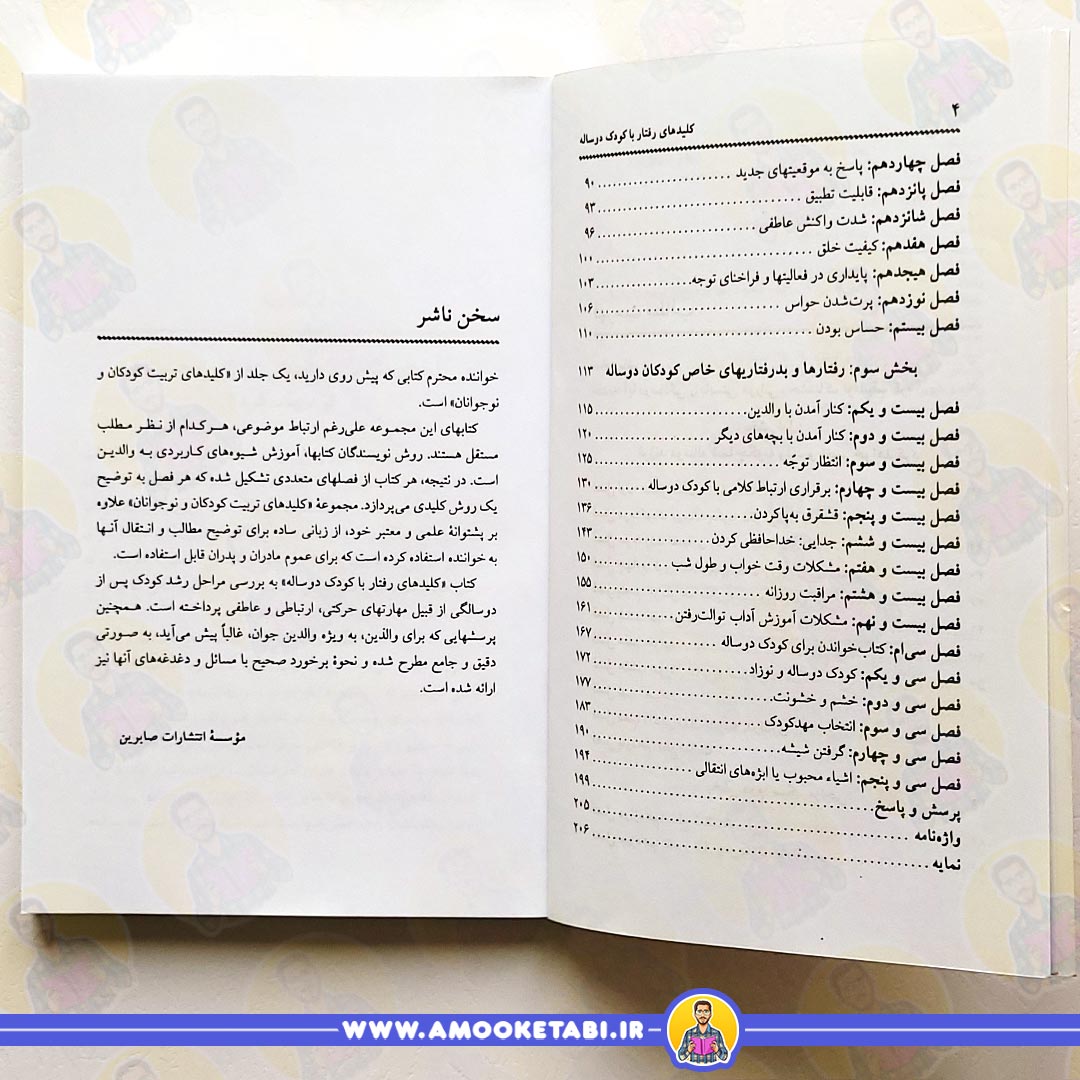 ۴
کلیدهای رفتار با کودک دوساله
فصل چهاردهم: پاسخ به موقعیتهای جدید ........................ ۹۰
فصل پانزدهم: قابلیت تطبیق ................................ ۹۳
فصل شانزدهم: شدت واکنش عاطفی ............................ ۹۶
فصل هفدهم: کیفیت خلق ................................ ۱۰۰
فصل هیجدهم: پایداری در فعالیتها و فراخنای توجه .................. ۱۰۳
فصل نوزدهم: پرت‌شدن حواس ............................ ۱۰۶
فصل بیستم: حساس بودن ................................ ۱۱۰
بخش سوم: رفتارها و بدرفتاریهای خاص کودکان دوساله ۱۱۳
فصل بیست و یکم: کنار آمدن با والدین ........................ ۱۱۵
فصل بیست و دوم: کنار آمدن با بچه‌های دیگر .................... ۱۲۰
فصل بیست و سوم: انتظار توجّه ............................ ۱۲۵
فصل بیست و چهارم: برقراری ارتباط کلامی با کودک دوساله .......... ۱۳۰
فصل بیست و پنجم: قشقرق به‌پاکردن ........................ ۱۳۶
فصل بیست و ششم: جدایی: خداحافظی کردن .................... ۱۴۳
فصل بیست و هفتم: مشکلات وقت خواب و طول شب ................ ۱۵۰
فصل بیست و هشتم: مراقبت روزانه ........................ ۱۵۵
فصل بیست و نهم: مشکلات آموزش آداب توالت‌رفتن ................ ۱۶۱
فصل سی‌ام: کتاب‌خواندن برای کودک دوساله .................... ۱۶۷
فصل سی و یکم: کودک دوساله و نوزاد ........................ ۱۷۲
فصل سی و دوم: خشم و خشونت ............................ ۱۷۷
فصل سی و سوم: انتخاب مهدکودک ........................ ۱۸۳
فصل سی و چهارم: گرفتن شیشه ............................ ۱۹۰
فصل سی و پنجم: اشیاء محبوب یا ابژه‌های انتقالی ................ ۱۹۴
پرسش و پاسخ ........................................ ۱۹۹
واژه‌نامه ........................................ ۲۰۵
نمایه ........................................ ۲۰۶
سخن ناشر
خواننده محترم کتابی که پیش روی دارید، یک جلد از «کلیدهای تربیت کودکان و
نوجوانان» است.
کتابهای این مجموعه علی‌رغم ارتباط موضوعی، هرکدام از نظر مطلب
مستقل هستند. روش نویسندگان کتابها، آموزش شیوه‌های کاربردی به والدین
است. در نتیجه، هر کتاب از فصلهای متعددی تشکیل شده که هر فصل به توضیح
یک روش کلیدی می‌پردازد. مجموعهٔ «کلیدهای تربیت کودکان و نوجوانان» علاوه
بر پشتوانهٔ علمی و معتبر خود، از زبانی ساده برای توضیح مطالب و انتقال آنها
به خواننده استفاده کرده است که برای عموم مادران و پدران قابل استفاده است.
کتاب «کلیدهای رفتار با کودک دوساله» به بررسی مراحل رشد کودک پس از
دوسالگی از قبیل مهارتهای حرکتی، ارتباطی و عاطفی پرداخته است. همچنین
پرسشهایی که برای والدین، به ویژه والدین جوان، غالباً پیش می‌آید، به صورتی
دقیق و جامع مطرح شده و نحوهٔ برخورد صحیح با مسائل و دغدغه‌های آنها نیز
ارائه شده است.
مؤسسهٔ انتشارات صابرین
WWW.AMOOKETABI.IR